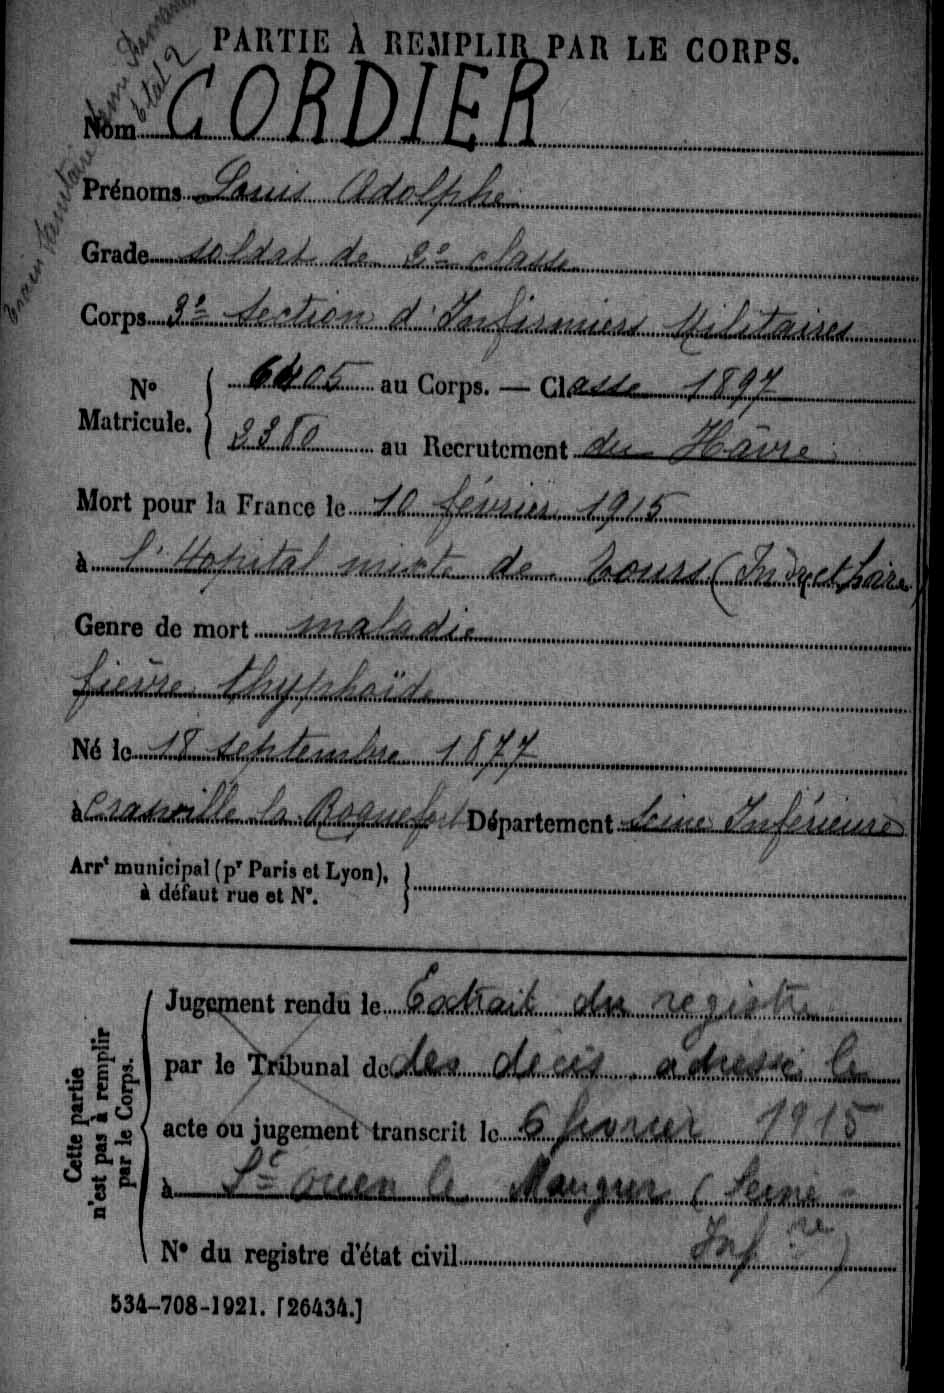 PARTIE À REMPLIR PAR LE CORPS.
Train Sanitaire Semi Permanent
Etat 2
Nom CORDIER
Prénoms Louis Adolphe
Grade soldat de 2e classe
Corps 3e Section d'Infirmiers Militaires
No Matricule. { 6405 au Corps. — Classe 1897
2380 au Recrutement du Hâvre
Mort pour la France le 10 février 1915
à l'Hopital mixte de Tours (Indre et Loire)
Genre de mort maladie
fièvre thyphoïde
Né le 18 septembre 1877
à Crasville la Roquefort Département Seine Inférieure
Arrt municipal (pr Paris et Lyon),
à défaut rue et No.
Cette partie
n'est pas à remplir
par le Corps.
Jugement rendu le Extrait du registre
par le Tribunal de des décès adressé le
acte ou jugement transcrit le 6 fevrier 1915
à St ouen le Mauger (Seine-
Infre)
No du registre d'état civil
534-708-1921. [26434.]